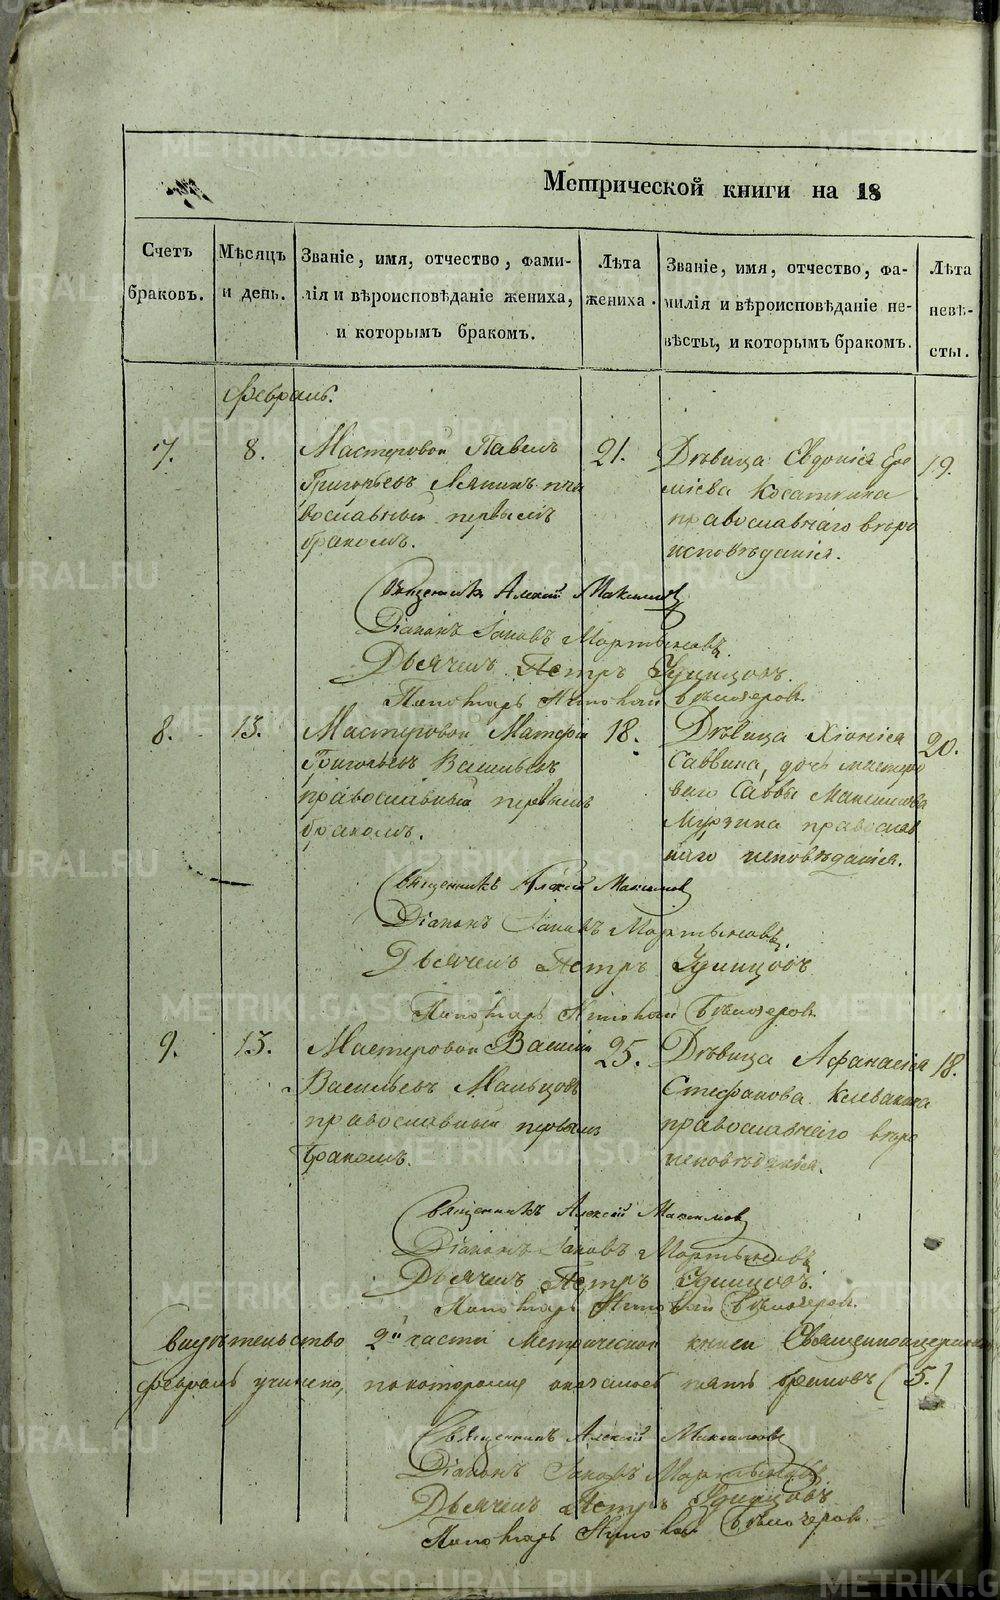 Метрической книги на 18
Счетъ браковъ.
Мѣсяцъ и день.
Званіе, имя, отчество, фами-
лія и вѣроисповѣданіе жениха,
и которымъ бракомъ.
Лѣта жениха.
Званіе, имя, отчество, фа-
милія и вѣроисповѣданіе не-
вѣсты, и которымъ бракомъ.
Лѣта невѣ-
сты.
Февраль.
7.
8.
Мастеровой Павелъ
Григорьевъ пра
вославный первымъ
бракомъ.
21.
Дѣвица Евдокія Ере
міева Косаткина
православнаго вѣро
исповѣданія.
19.
Священникъ Алексій Максимов
Діаконъ Іаковъ Мартыновъ.
Дьячекъ Петръ Удинцовъ.
Пономарь Николай Бѣлозеровъ.
8.
13.
Мастеровой Матфій
Григорьевъ Васильевъ
православный первымъ
бракомъ.
18.
Дѣвица Хіонія
Саввина, дочь мастеро
ваго Саввы Максимова
Мурзина православ
наго исповѣданія.
20.
Священникъ Алексій Максимов
Діаконъ Іаковъ Мартыновъ.
Дьячекъ Петръ Удинцовъ
Пономарь Николай Бѣлозеровъ
9.
13.
Мастеровой Василій
Васильевъ Мальцовъ
православный первымъ
бракомъ.
25.
Дѣвица Афанасія
Стефанова Клевакина
православнаго вѣро
исповѣданія.
18.
Священникъ Алексій Максимовъ
Діаконъ Іаковъ Мартыновъ
Дьячекъ Петръ Удинцовъ.
Пономарь Николай Бѣлозеровъ.
Свидѣтельство 2й части Метрической книги Священноцерковно
февраль учинено, по которому оказалось пять браковъ (5.)
Священникъ Алексій Максимовъ
Діаконъ Іаковъ Мартыновъ.
Дьячекъ Петръ Удинцовъ
Пономарь Николай Бѣлозеровъ.
METRIKI.GASO-URAL.RU